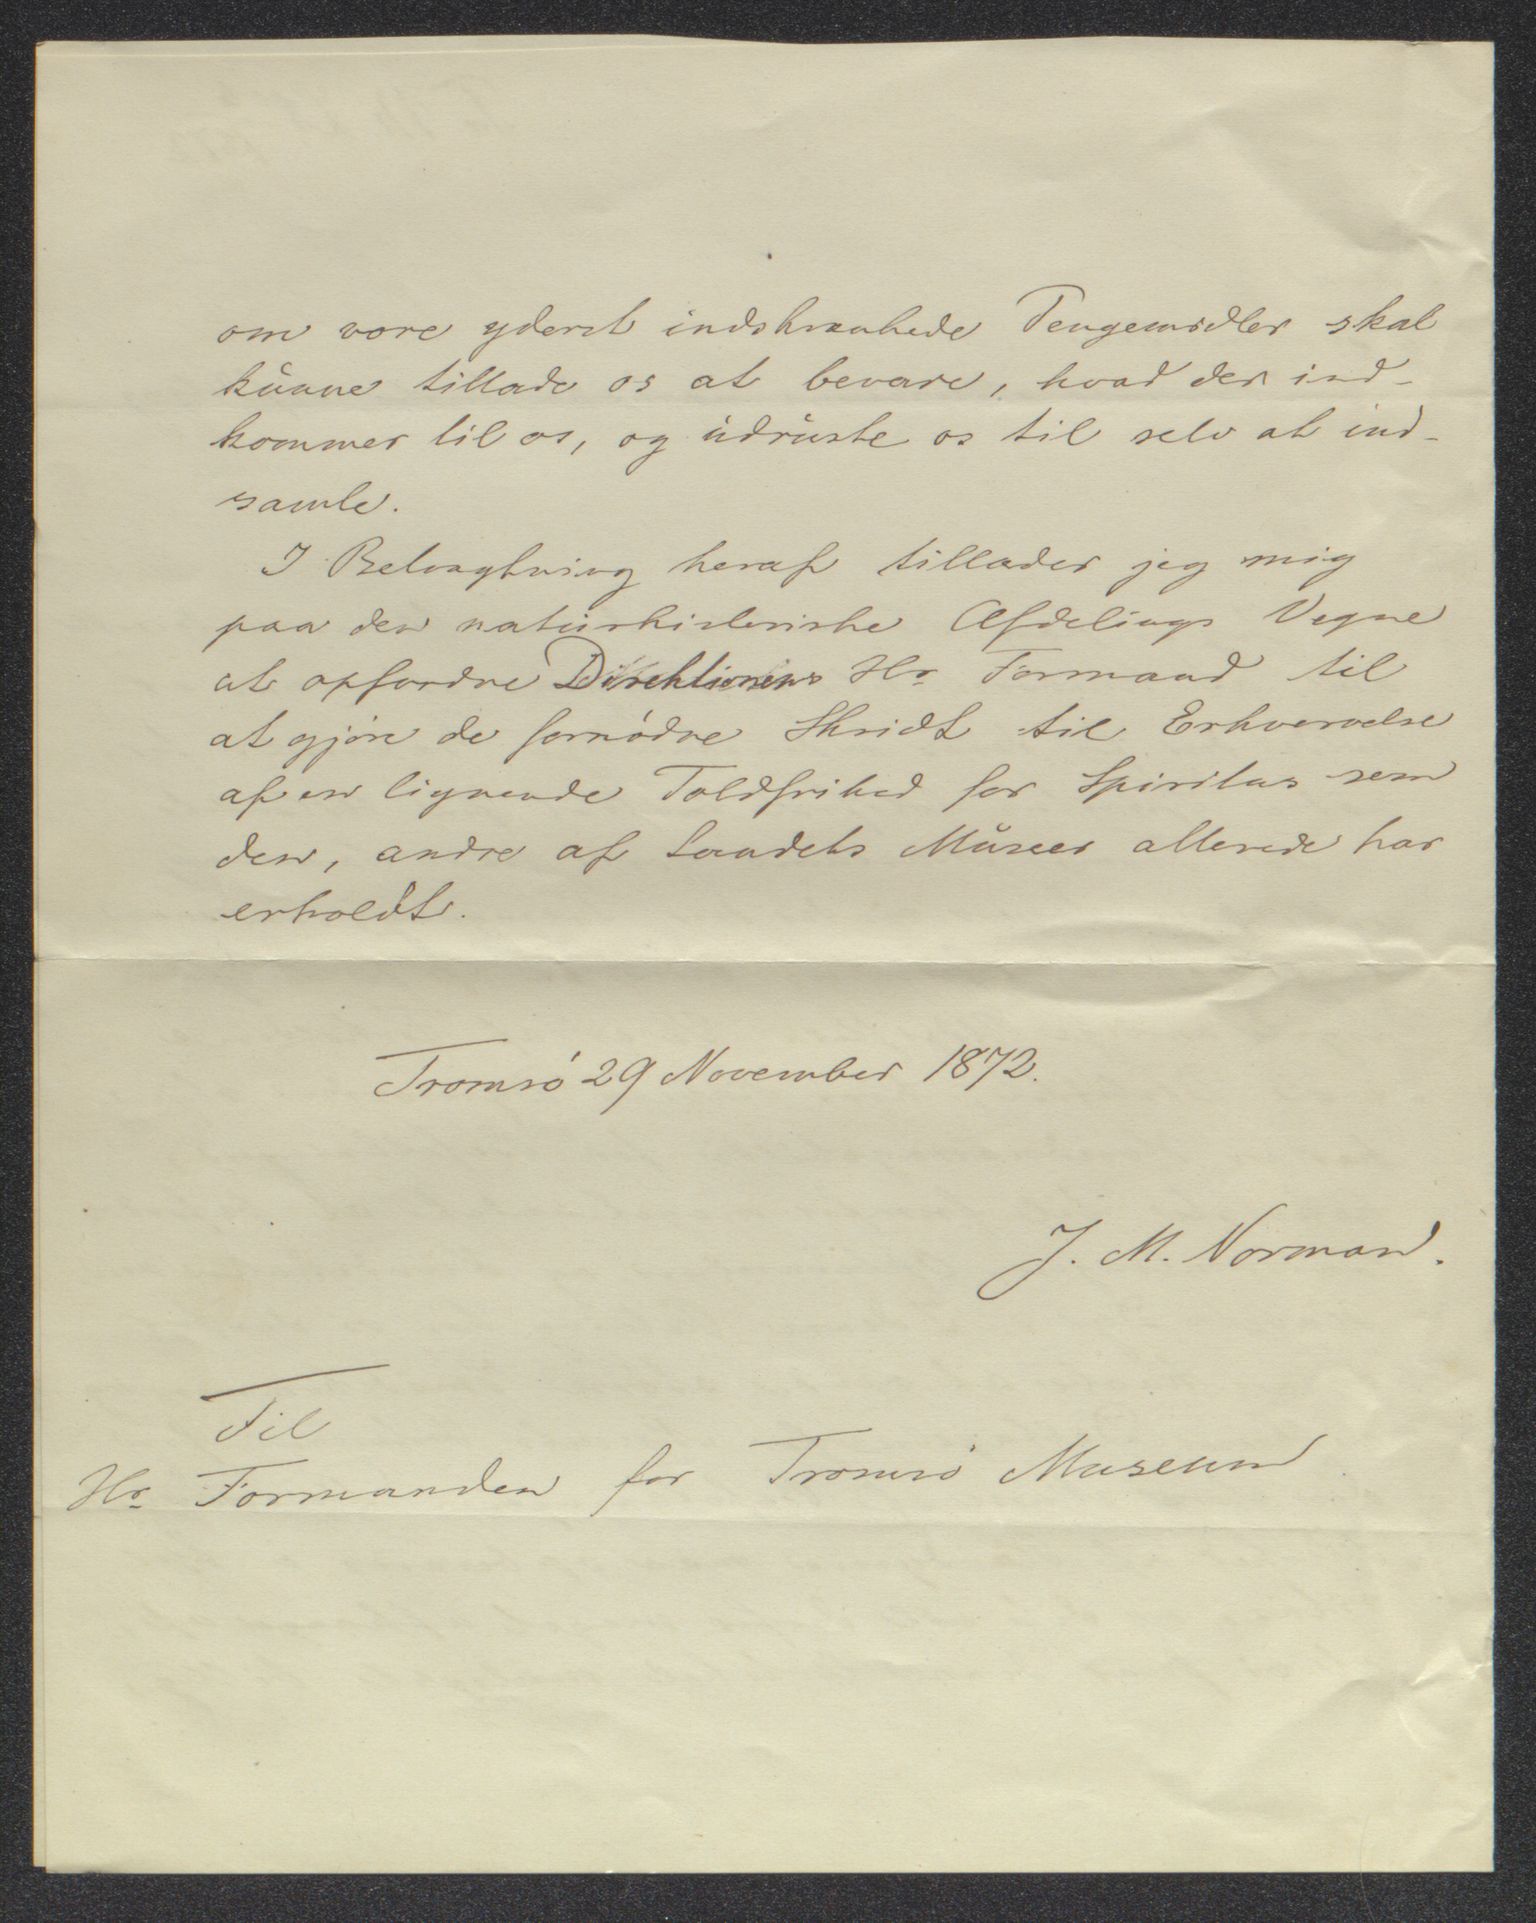 om vore yderst indskrænkede Pengemidler skal
kunne tillade os at bevare, hvad der ind-
kommer til os, og udruste os til selv at ind-
samle.
I Betragtning heraf tillader jeg mig
paa den naturhistoriske Afdelings Vegne
at opfordre Direktionens Hr Formand til
at gjøre de fornødne Skridt til Erhvervelse
af en lignende Toldfrihed for Spiritus som
den, andre af Landets Museer allerede har
erholdt.
Tromsø 29 November 1872.
J. M. Norman.
Til
Hr Formanden for Tromsø Museum